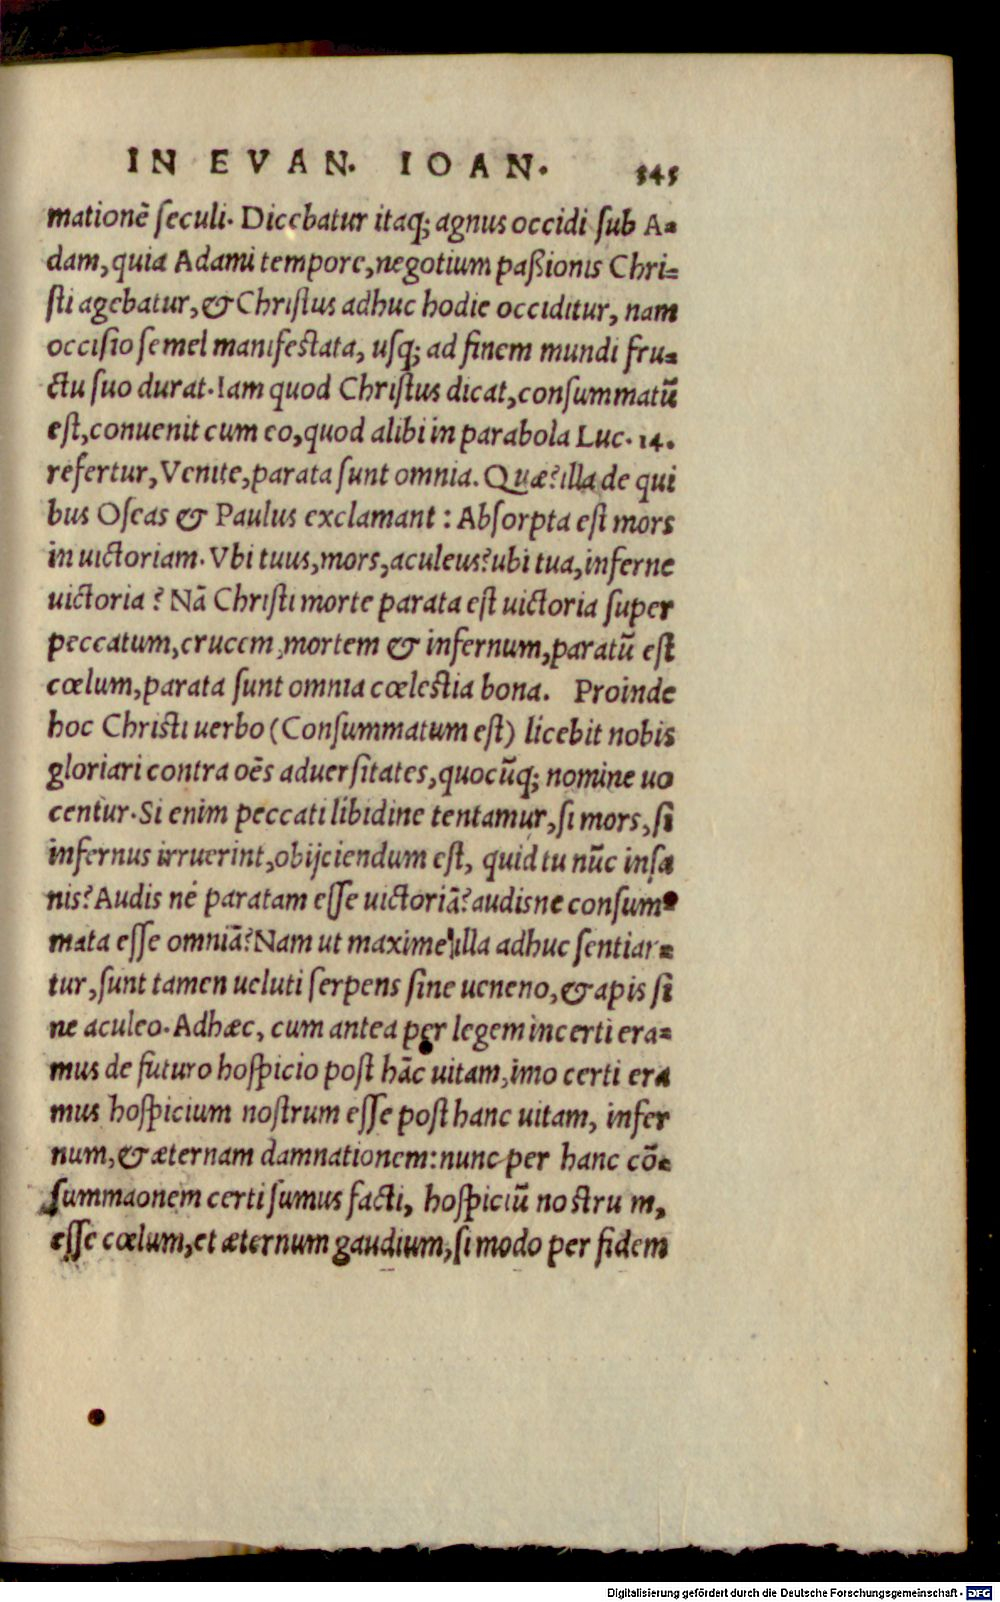 IN EVAN. IOAN. 345
mationē ſeculi. Dicebatur itaq; agnus occidi ſub A-
dam, quia Adami tempore, negotium paßionis Chri-
ſti agebatur, & Chriſtus adhuc hodie occiditur, nam
occiſio ſemel manifeſtata, uſq; ad finem mundi fru-
ctu ſuo durat. Iam quod Chriſtus dicat, conſummatū
eſt, conuenit cum eo, quod alibi in parabola Luc. 14.
refertur, Venite, parata ſunt omnia. Quæ? illa de qui
bus Oſeas & Paulus exclamant: Abſorpta eſt mors
in uictoriam. Vbi tuus, mors, aculeus? ubi tua, inferne
uictoria? Nā Chriſti morte parata eſt uictoria ſuper
peccatum, crucem, mortem & infernum, paratū eſt
cœlum, parata ſunt omnia cœleſtia bona. Proinde
hoc Chriſti uerbo (Conſummatum eſt) licebit nobis
gloriari contra oēs aduerſitates, quocūq; nomine uo
centur. Si enim peccati libidine tentamur, ſi mors, ſi
infernus irruerint, obijciendum eſt, quid tu nūc inſa
nis? Audis nè paratam eſſe uictoriā? audisne conſum-
mata eſſe omniā? Nam ut maxime illa adhuc ſentian-
tur, ſunt tamen ueluti ſerpens ſine ueneno, & apis ſi
ne aculeo. Adhæc, cum antea per legem incerti era-
mus de futuro hoſpicio poſt hāc uitam, imo certi era
mus hoſpicium noſtrum eſſe poſt hanc uitam, infer
num, & æternam damnationem: nunc per hanc cō-
ſummaonem certi ſumus facti, hoſpiciū noſtrum,
eſſe cœlum, et æternum gaudium, ſi modo per fidem
Digitalisierung gefördert durch die Deutsche Forschungsgemeinschaft - DFG